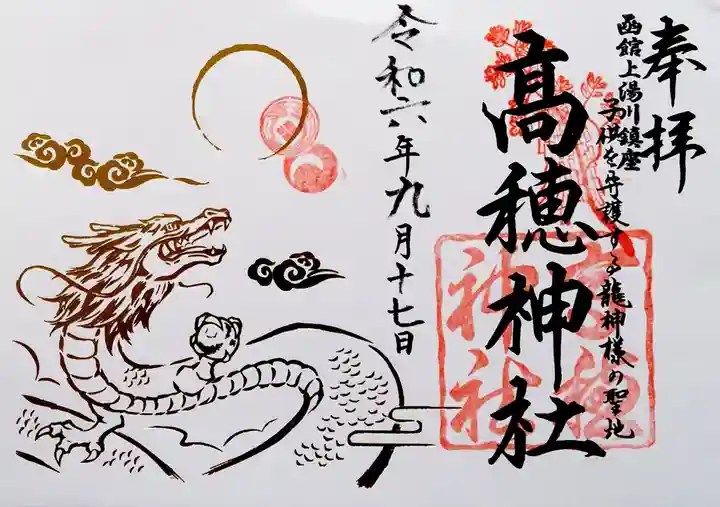 奉拝
函館上湯川鎮座
子供を守護する龍神様の聖地
高穂神社
高穂神社
令和六年九月十七日